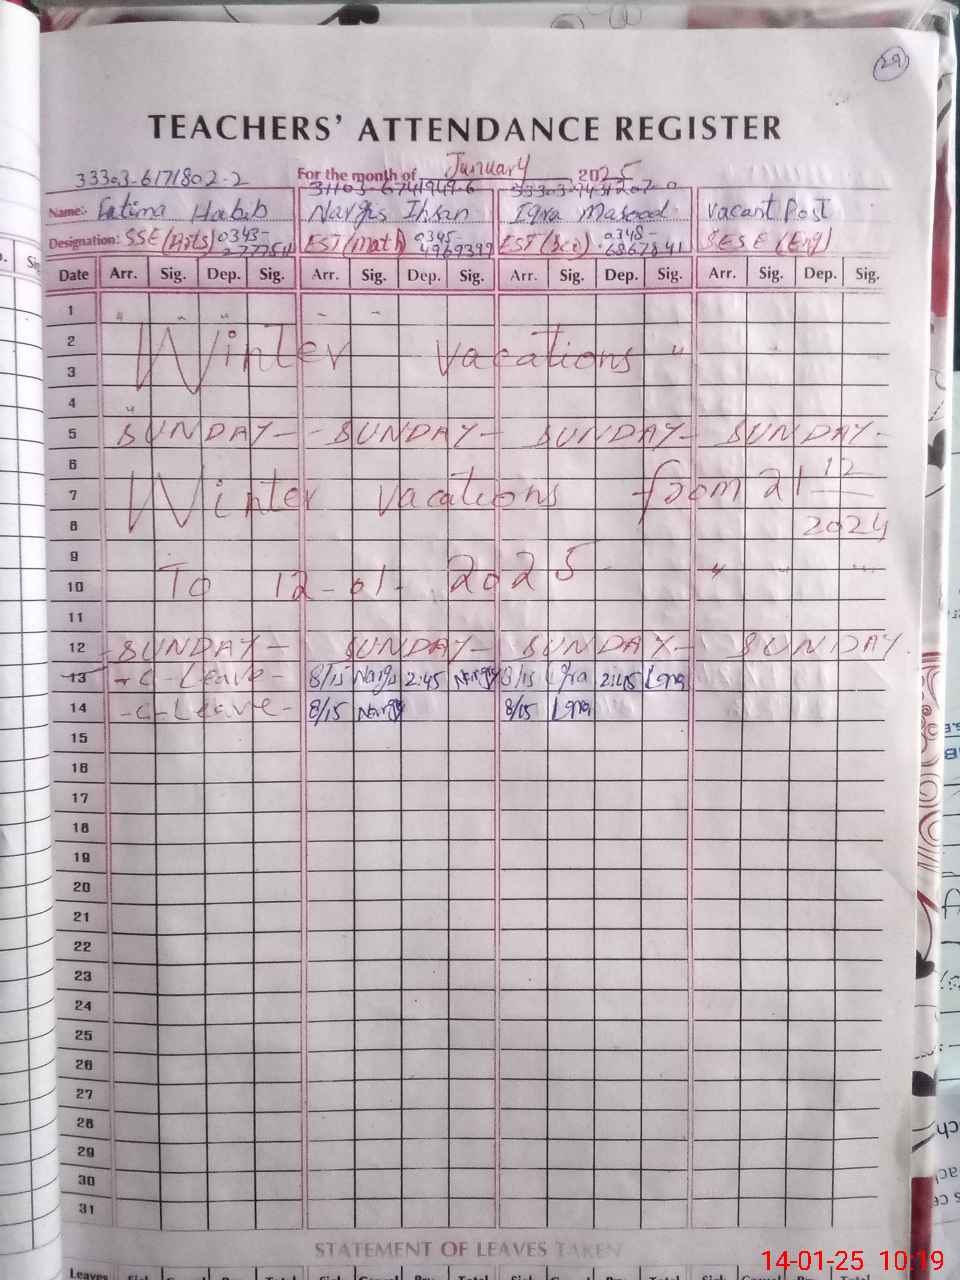 29
TEACHERS' ATTENDANCE REGISTER
33303-6171802-2 For the month of January 2025
31103-6741949-6
Name:- Fatima Habib Nargis Ihsan Iqra Masood Vacant Post
Designation: SSE (Arts) 0343- EST (Math) 0345-4969399 EST (Sci) 0348-6867841 SESE (Eng)
Date Arr. Sig. Dep. Sig. Arr. Sig. Dep. Sig. Arr. Sig. Dep. Sig. Arr. Sig. Dep. Sig.
1
2 Winter vacations "
3
4
5 SUNDAY - - SUNDAY - SUNDAY - SUNDAY -
6
7 Winter vacations from 21 12
8 2024
9
10 To 12-01-2025
11
12 - SUNDAY - SUNDAY - SUNDAY - SUNDAY
13 - C - Leave - 8/15 Nargis 2:45 Nargis 8/15 Iqra 2:45 Iqra
14 - C - Leave - 8/15 Nargis 8/15 Iqra
15
16
17
18
19
20
21
22
23
24
25
26
27
28
29
30
31
STATEMENT OF LEAVES TAKEN
Leaves
14-01-25 10:19